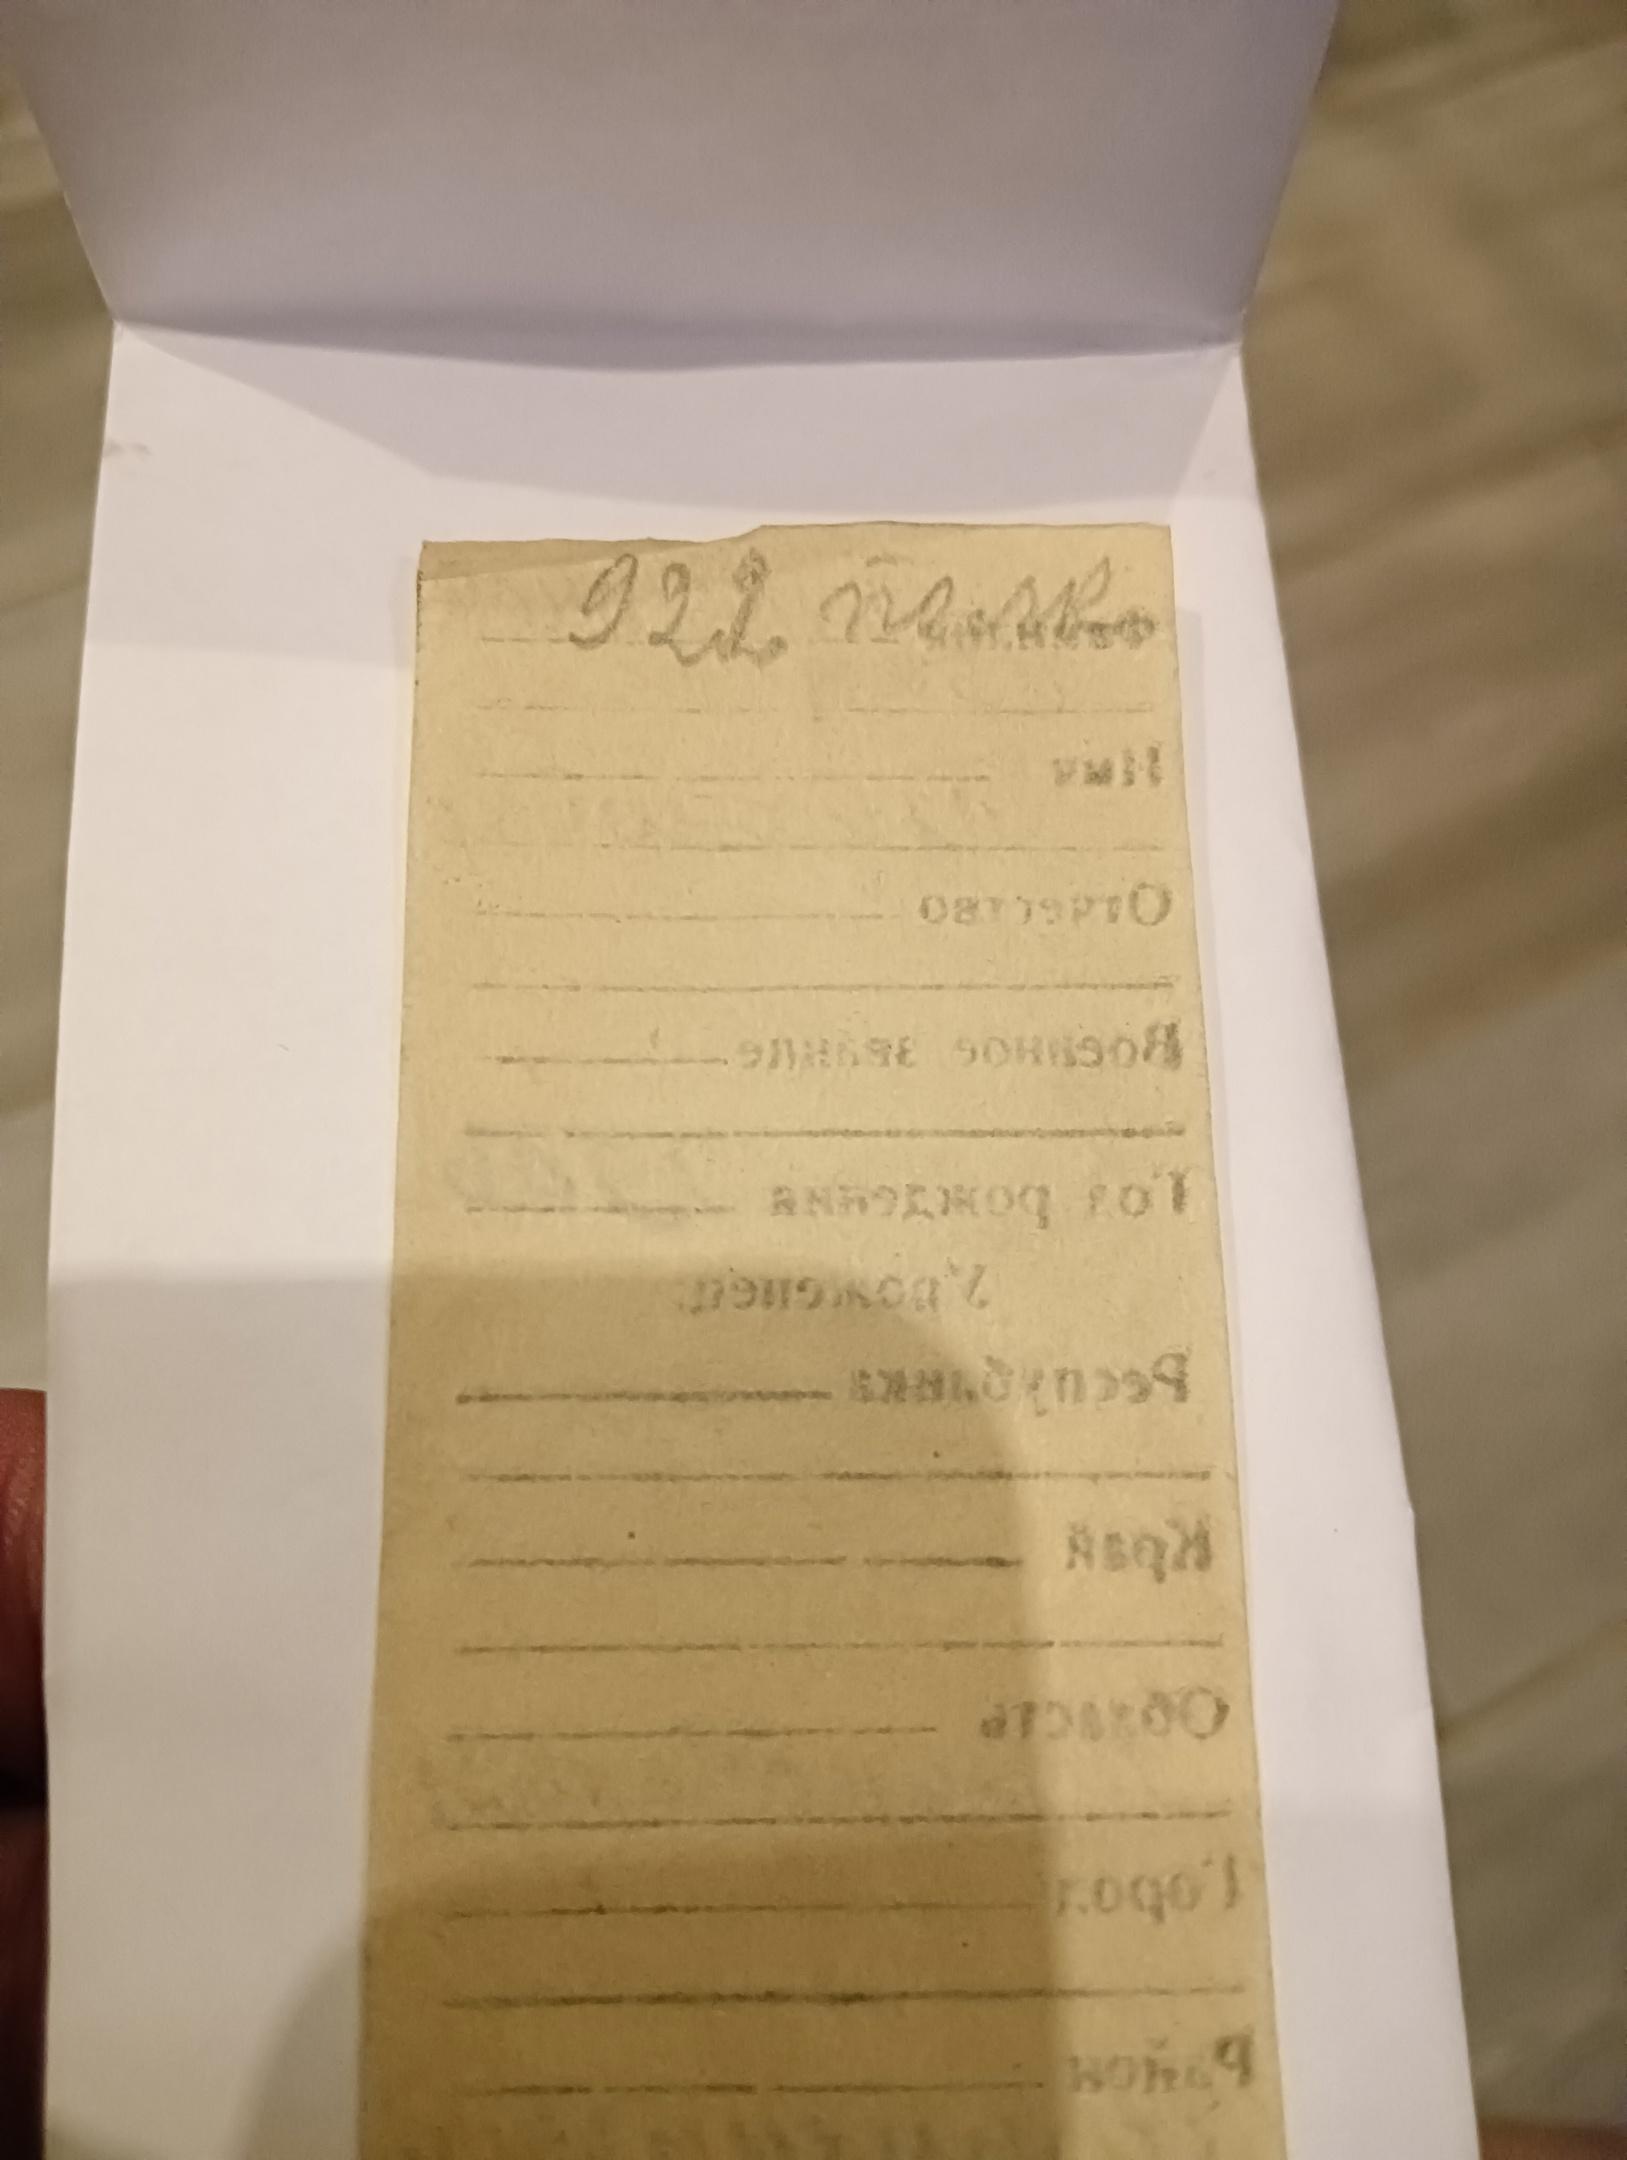 922
Фамилия
Имя
Отчество
Военное звание
Год рождения
Уроженец:
Республика
Край
Область
Город
Район